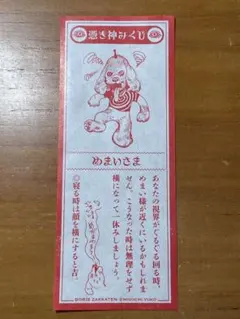 憑き神みくじ
めまいさま
あなたの視界がぐるぐる回る時、
めまい様が近くにいるかもしれま
せん。こうなった時は無理をせず
横になって一休みしましょう。
◎寝る時は顔を横にすると吉。